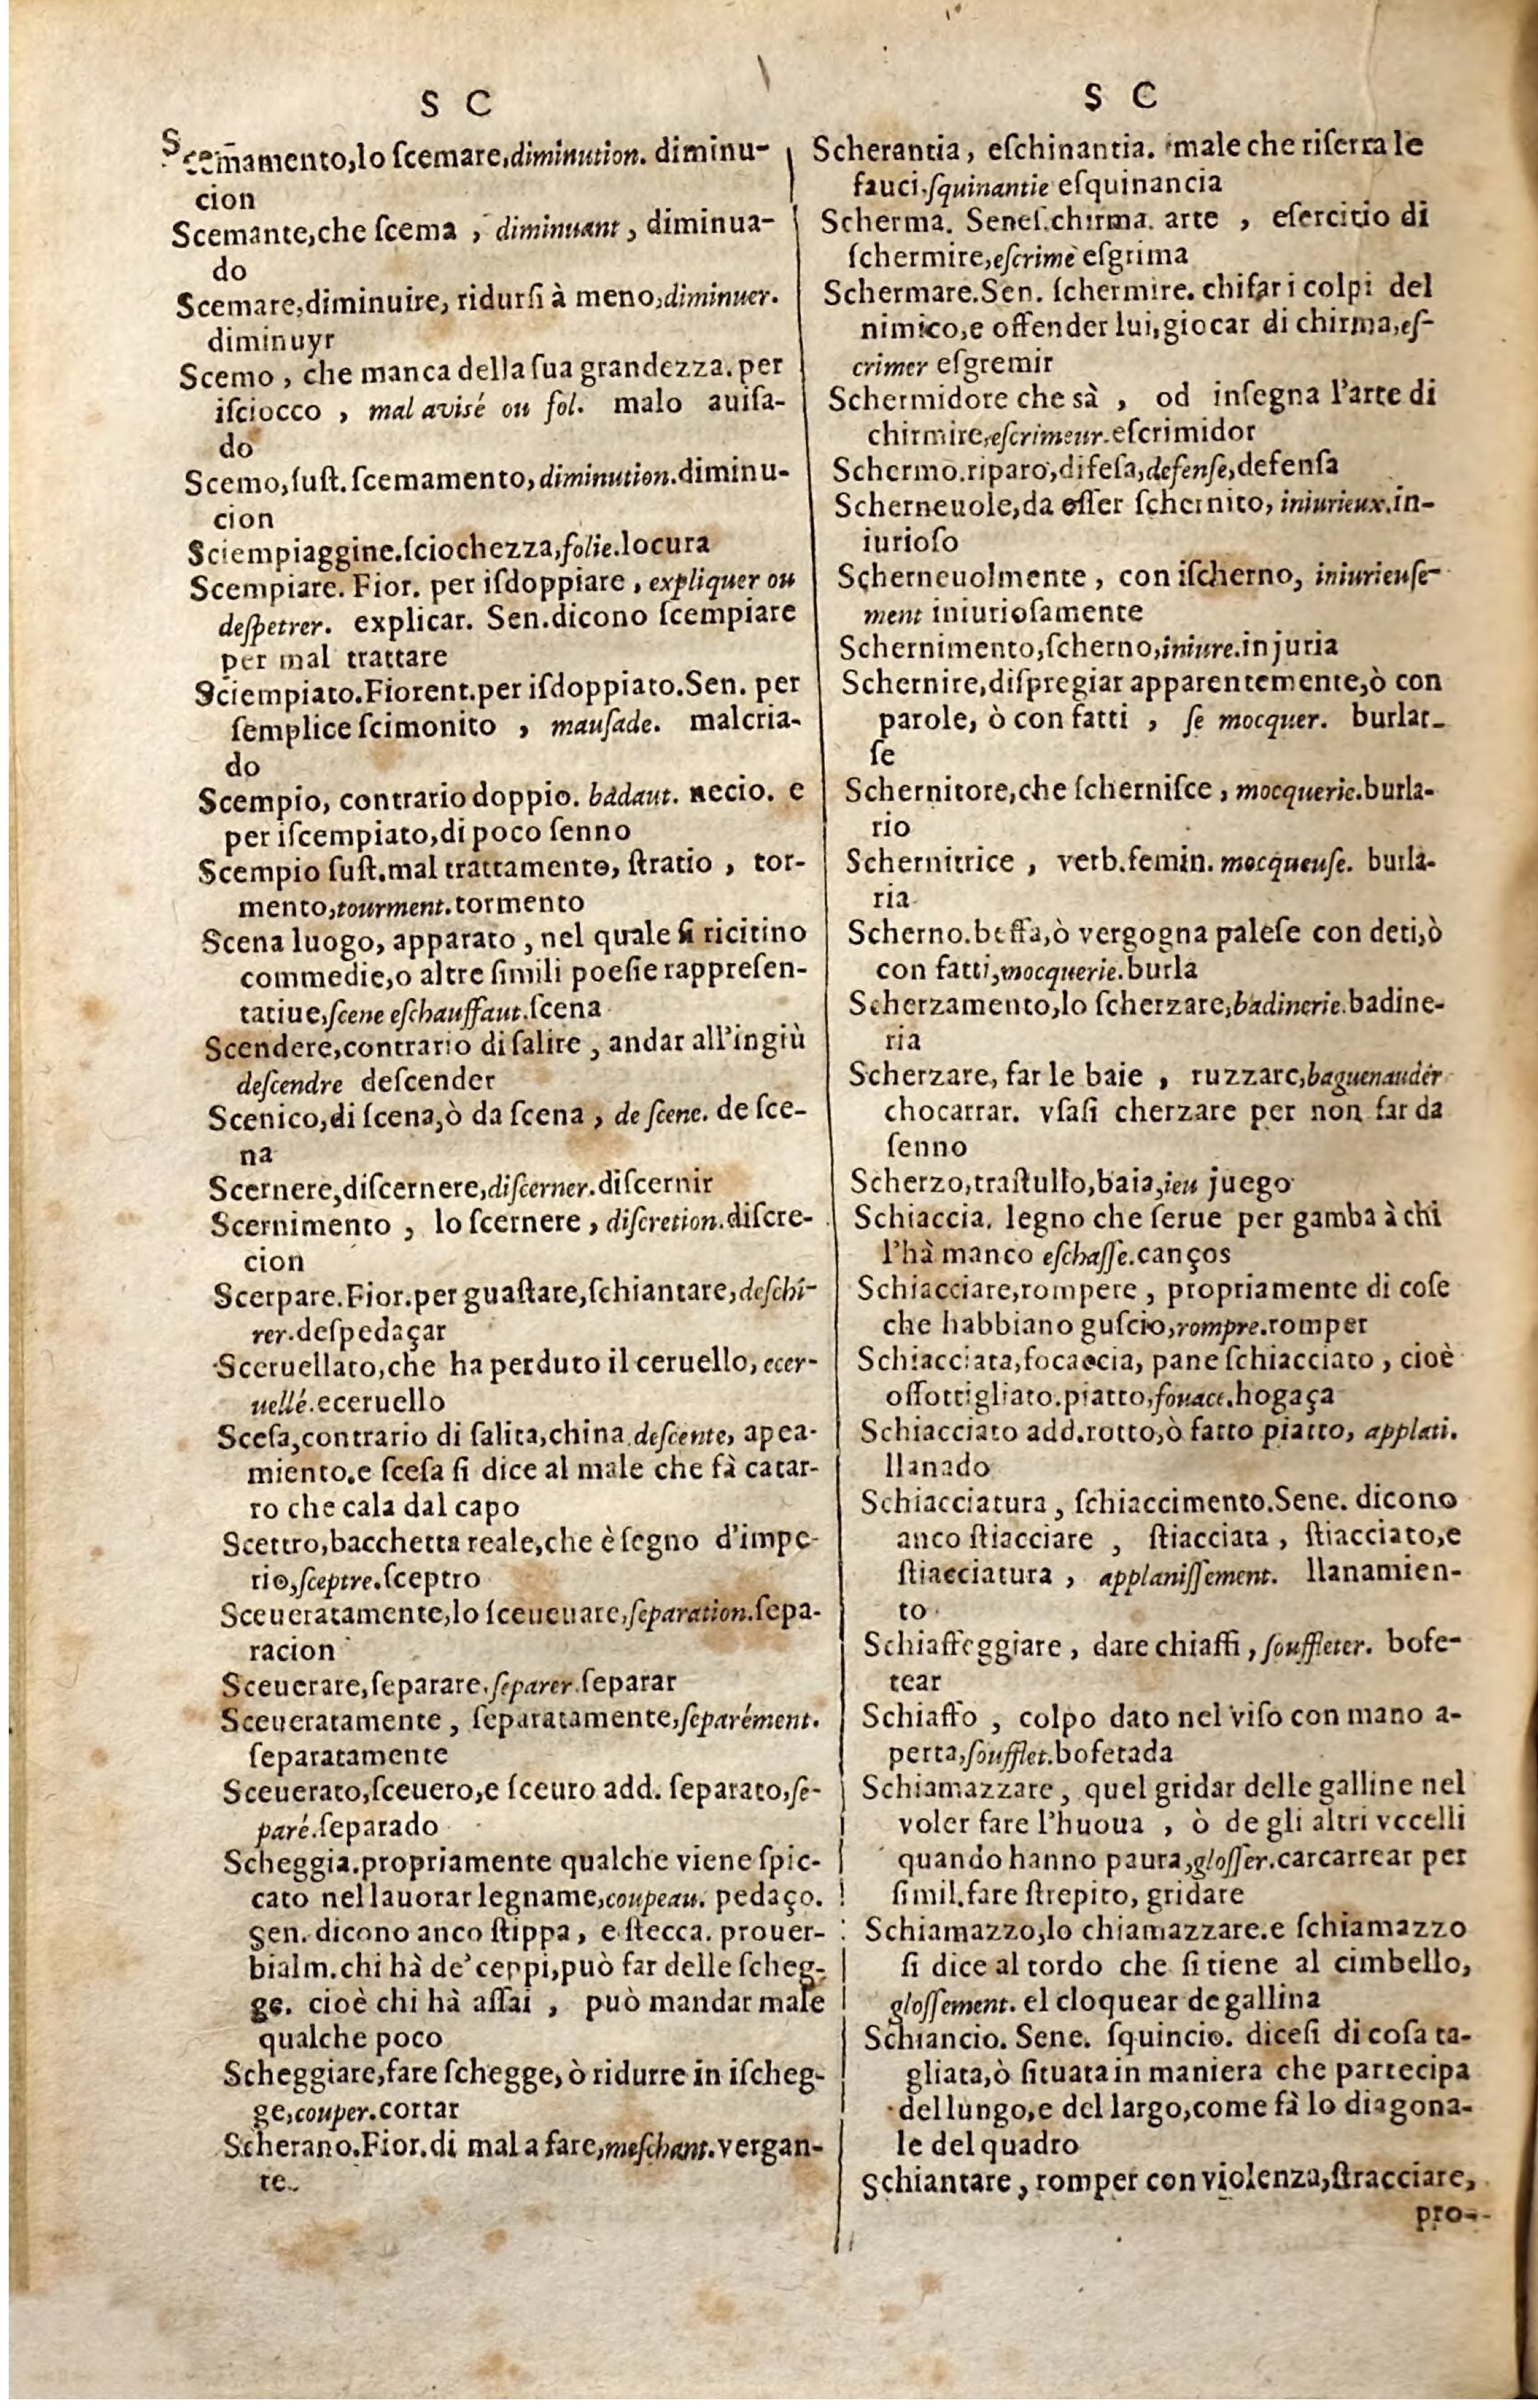 S C
Scem̃amento,lo ſcemare,diminution. diminu-
cion
Scemante,che ſcema , diminuant , diminua-
do
Scemare,diminuire, ridurſi à meno,diminuer.
diminuyr
Scemo , che manca della ſua grandezza. per
iſciocco , mal avisé ou fol. malo auiſa-
do
Scemo,ſuſt. ſcemamento,diminution.diminu-
cion
Sciempiaggine.ſciochezza,folie.locura
Scempiare. Fior. per iſdoppiare , expliquer ou
deſpetrer. explicar. Sen.dicono ſcempiare
per mal trattare
Sciempiato.Fiorent.per iſdoppiato.Sen. per
ſemplice ſcimonito , mauſade. malcria-
do
Scempio, contrario doppio. badaut. necio. e
per iſcempiato,di poco ſenno
Scempio ſuſt.mal trattamento, ſtratio , tor-
mento,tourment.tormento
Scena luogo, apparato , nel quale ſi ricitino
commedie,o altre ſimili poeſie rappreſen-
tatiue,ſcene eſchauffaut.ſcena
Scendere,contrario di ſalire , andar all'ingiù
deſcendre deſcender
Scenico,di ſcena,ò da ſcena , de ſcene. de ſce-
na
Scernere,diſcernere,diſcerner.diſcernir
Scernimento , lo ſcernere , diſcretion.diſcre-
cion
Scerpare.Fior.per guaſtare,ſchiantare,deſchi-
rer.deſpedaçar
Sceruellato,che ha perduto il ceruello, ecer-
uellé.eceruello
Sceſa,contrario di ſalita,china deſcente, apea-
miento.e sceſa ſi dice al male che fà catar-
ro che cala dal capo
Scettro,bacchetta reale,che è ſegno d'impe-
rio,ſceptre.sceptro
Sceueratamente,lo ſceueuare,ſeparation.ſepa-
racion
Sceuerare,ſeparare.ſeparer.ſeparar
Sceueratamente , ſeparatamente,ſeparément.
ſeparatamente
Sceuerato,ſceuero,e ſceuro add. ſeparato,ſe-
paré.ſeparado
Scheggia.propriamente qualche viene ſpic-
cato nel lauorar legname,coupeau. pedaço.
sen. dicono anco ſtippa , e ſtecca. prouer-
bialm.chi hà de' ceppi,può far delle ſcheg-
ge. cioè chi hà aſſai , può mandar male
qualche poco
Scheggiare,fare ſchegge, ò ridurre in iſcheg-
ge,couper.cortar
Scherano.Fior.di mal a fare,meſchant.vergan-
te.
S C
Scherantia , eſchinantia. male che riſerra le
fauci.ſquinantie eſquinancia
Scherma. Seneſ.chirma. arte , eſercitio di
ſchermire,eſcrime eſgrima
Schermare.Sen. ſchermire. chiſar i colpi del
nimico,e offender lui,giocar di chirma,eſ-
crimer eſgremir
Schermidore che sà , od inſegna l'arte di
chirmire,eſcrimeur.eſcrimidor
Schermo.riparo,difeſa,defenſe,defenſa
Scherneuole,da eſſer ſchernito, iniurieux.in-
iurioſo
Scherneuolmente , con iſcherno, iniurieuſe-
ment iniurioſamente
Schernimento,ſcherno,iniure.injuria
Schernire,diſpregiar apparentemente,ò con
parole, ò con fatti , ſe mocquer. burlar-
ſe
Schernitore,che ſcherniſce , mocquerie.burla-
rio
Schernitrice , verb.femin. mocqueuſe. burla-
ria
Scherno.beffa,ò vergogna paleſe con deti,ò
con fatti,mocquerie.burla
Scherzamento,lo ſcherzare,badinerie.badine-
ria
Scherzare, far le baie , ruzzare,baguenauder
chocarrar. vſaſi cherzare per non far da
ſenno
Scherzo,traſtullo,baia,ieu juego
Schiaccia. legno che ſerue per gamba à chi
l'hà manco eſchaſſe.canços
Schiacciare,rompere , propriamente di coſe
che habbiano guſcio,rompre.romper
Schiacciata,focaccia, pane ſchiacciato , cioè
oſſottigliato.piatto,fouace.hogaça
Schiacciato add.rotto,ò fatto piatto, applati.
llanado
Schiacciatura , ſchiaccimento.Sene. dicono
anco ſtiacciare , ſtiacciata , ſtiacciato,e
ſtiacciatura , applaniſſement. llanamien-
to
Schiaffeggiare , dare chiaffi , ſouffleter. bofe-
tear
Schiaffo , colpo dato nel viſo con mano a-
perta,ſoufflet.bofetada
Schiamazzare , quel gridar delle galline nel
voler fare l'huoua , ò de gli altri vccelli
quando hanno paura,gloſſer.carcarrear per
ſimil.fare ſtrepito, gridare
Schiamazzo,lo chiamazzare.e ſchiamazzo
ſi dice al tordo che ſi tiene al cimbello,
gloſſement. el cloquear de gallina
Schiancio. Sene. ſquincio. diceſi di coſa ta-
gliata,ò ſituata in maniera che partecipa
del lungo,e del largo,come fà lo diagona-
le del quadro
Schiantare , romper con violenza,ſtracciare,
pro-